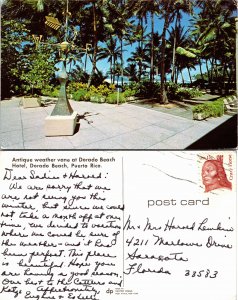 Antique weather vane at Dorado Beach
Hotel, Dorado Beach, Puerto Rico.
post card
Dear Sadie & Harold:
We are sorry that we
are not seeing you this
winter but since we could
not take a month off at my
time, we decided to
where we could be sure of
the weather - and it has
been perfect. This place
is beautiful. Hope you
are having a good season.
Our best to the
and
Affectionately,
Eugene &
Mr & Mrs Harold
4211 Marlowe Drive
Sarasota
Florida 33583